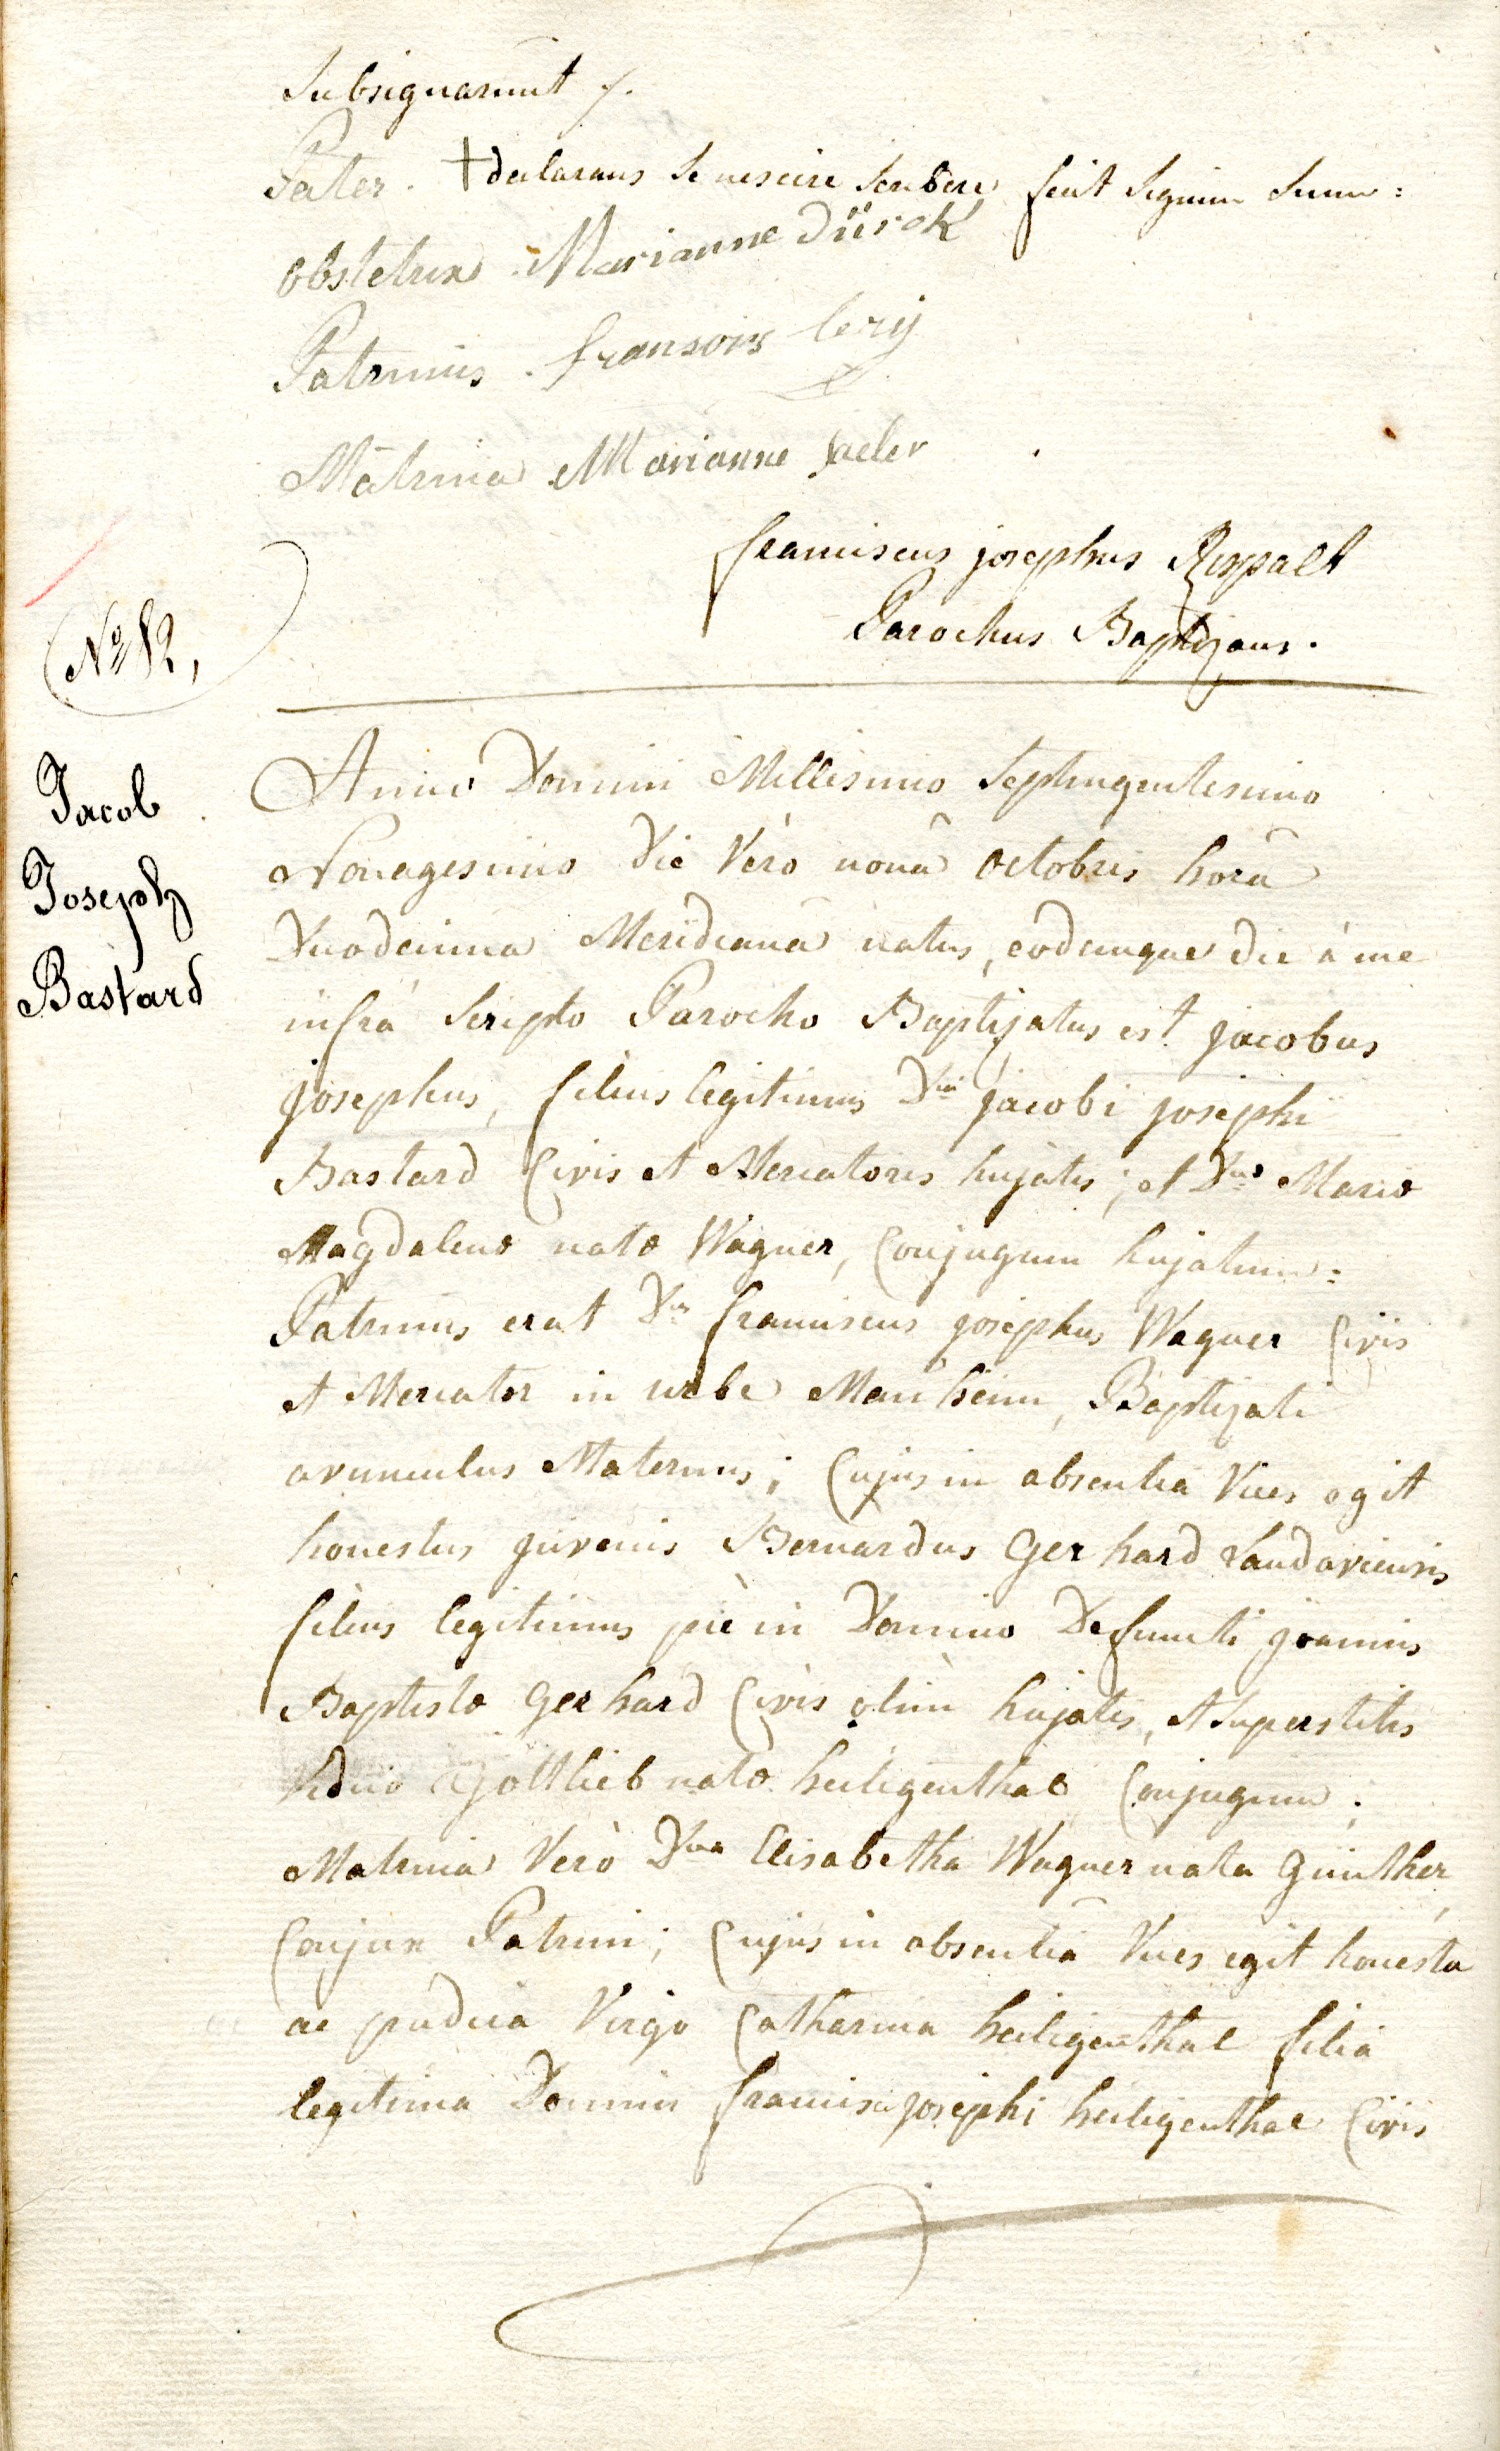 Subsignarunt /.
Pater. + declarans se nescire scribere fecit signum suum:
obstetrix Marianne Dürck
Patrinus fransois
Matrina Marianne
franciscus josephus
Parochus Baptizans.
N° 82,
Jacob
Joseph
Bastard
Anno Domini Millesimo Septingentesimo
Nonagesimo die Vèro nonâ octobris horâ
Duodecima Meridiana natus, eodemque die à me
infrà Scripto Parocho Baptizatus est jacobus
josephus, filius legitimus Dni jacobi josephi
Bastard Civis et Mercatoris hujatis; et Dnæ Mariæ
Magdalenæ natæ Wagner, Conjugum hujatum:
Patrinus erat Dns franciscus josephus Wagner Civis
et Mercator in urbe Manheim, Baptizati
avunculus Maternus; Cujus in absentia Vices egit
honestus juvenis Bernardus Gerhard Landaviensis
filius legitimus piè in Domino Defuncti joannis
Baptistæ Gerhard Civis olim hujatis, et superstitis
viduæ Gottlieb natæ heiligenthal Conjugum;
Matrina Verò Dna Elisabetha Wagner nata Günther,
Conjux Patrini; Cujus in absentiâ Vices egit honesta
ac pudica Virgo Catharina heiligenthal filia
legitima Domini francisci josephi heiligenthal Civis